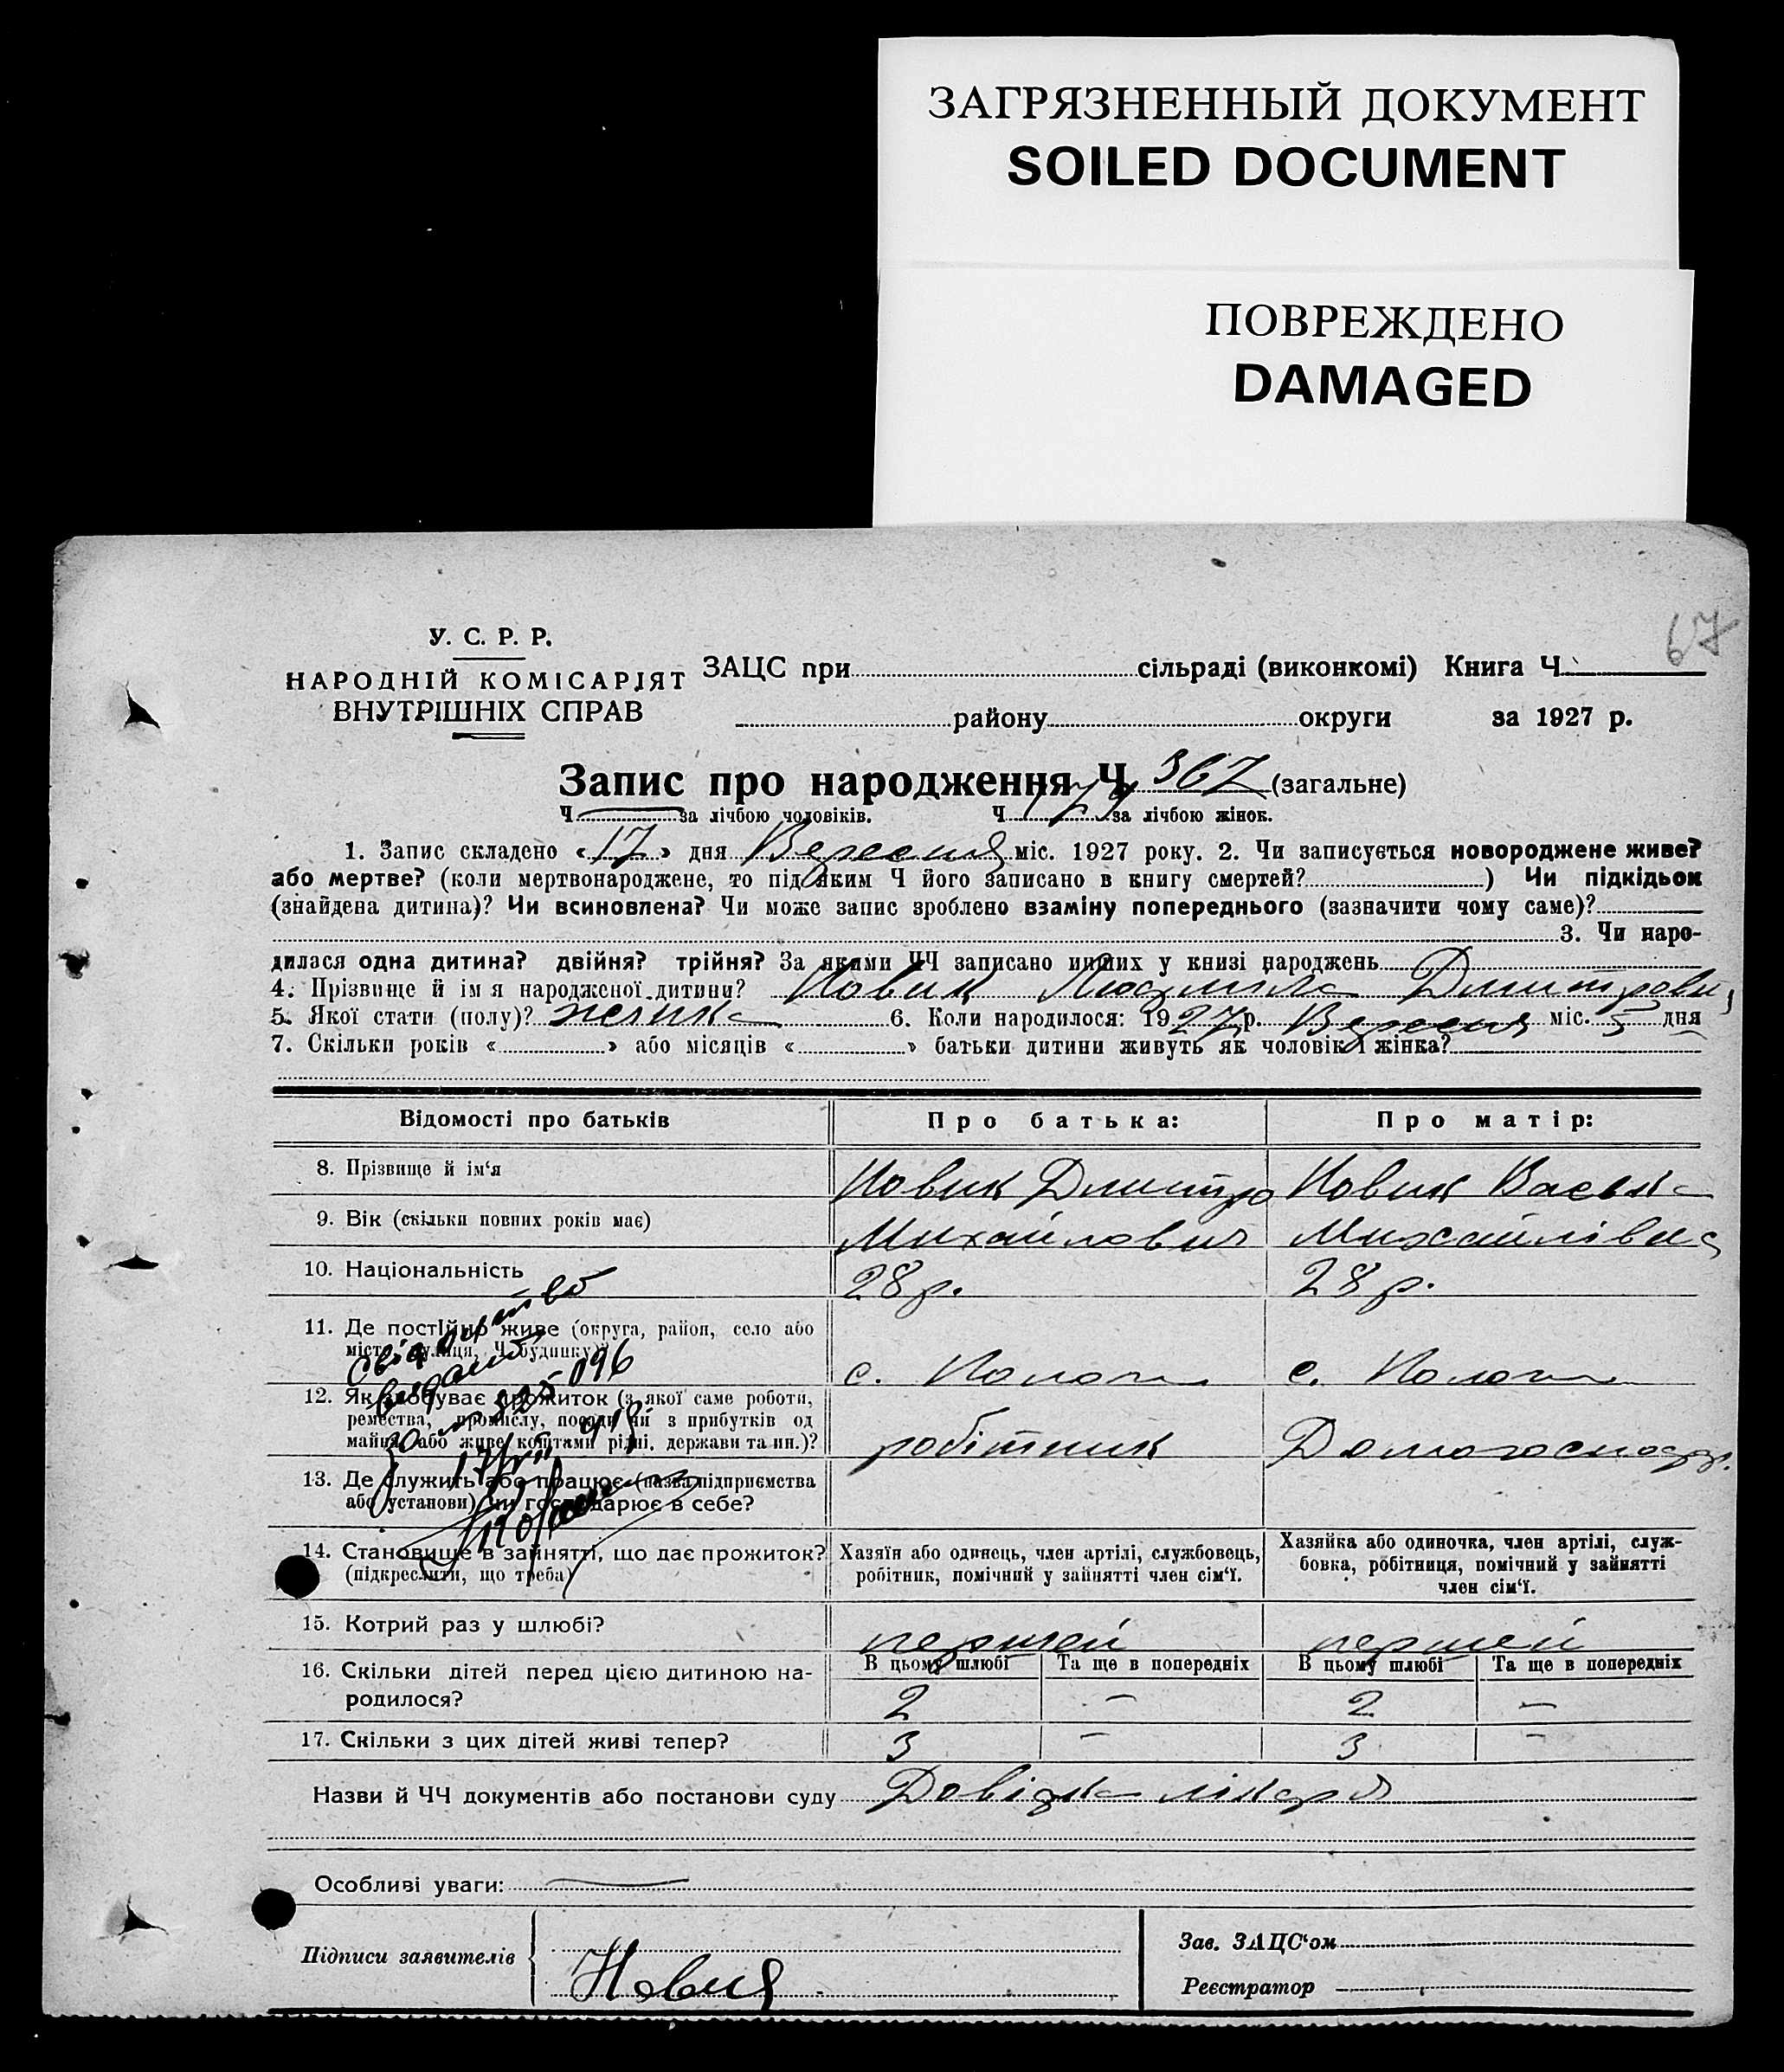 ЗАГРЯЗНЕННЫЙ ДОКУМЕНТ
SOILED DOCUMENT
ПОВРЕЖДЕНО
DAMAGED
67
У. С. Р. Р.
НАРОДНІЙ КОМІСАРІЯТ
ВНУТРІШНІХ СПРАВ
ЗАЦС при сільраді (виконкомі) Книга Ч.
району округи за 1927 р.
Запис про народження Ч 367 (загальне)
Ч. за лічбою чоловіків. Ч. 179 за лічбою жінок.
1. Запис складено «17» дня Вересня міс. 1927 року. 2. Чи записується новороджене живе?
або мертве? (коли мертвонароджене, то під яким Ч його записано в книгу смертей?) Чи підкідьок
(знайдена дитина)? Чи всиновлена? Чи може запис зроблено взаміну попереднього (зазначити чому саме)?
3. Чи наро-
дилася одна дитина? двійня? трійня? За якими ЧЧ записано инших у книзі народжень
4. Прізвище й ім я народженої дитини? Новик Людмила Дмитровн
5. Якої стати (полу)? жінка 6. Коли народилося: 1927 р. Вересня міс. 5 дня
7. Скільки років « » або місяців « » батьки дитини живуть як чоловік і жінка?
Відомості про батьків Про батька: Про матір:
8. Прізвище й ім‘я Новик Дмитро Новик Васька
9. Вік (скільки повних років має) Михайлович Михайлівна
10. Національність 28 р. 28 р.
11. Де постійно живе (округа, район, село або
місто, вулиця, Ч будинку)? с. Пологи с. Пологи
12. Як здобуває прожиток (з якої саме роботи,
ремества, промислу, посади чи з прибутків од
майна або живе коштами рідні, держави та ин.)? робітник Домогоспод.
13. Де служить або працює (назва підприємства
або установи) чи господарює в себе?
свідоцтво
видано
325096
14. Становище в зайнятті, що дає прожиток?
(підкреслити, що треба)
Хазяїн або одинець, член артілі, службовець,
робітник, помічний у зайнятті член сім‘ї.
Хазяйка або одиночка, член артілі, служ-
бовка, робітниця, помічний у зайнятті
член сім‘ї.
15. Котрий раз у шлюбі? першей першей
16. Скільки дітей перед цією дитиною на-
родилося?
В цьому шлюбі Та ще в попередніх В цьому шлюбі Та ще в попередніх
2 – 2 –
17. Скільки з цих дітей живі тепер? 3 – 3 –
Назви й ЧЧ документів або постанови суду Довідка лікаря
Особливі уваги:
Підписи заявителів
Новик
Зав. ЗАЦС‘ом
Реєстратор